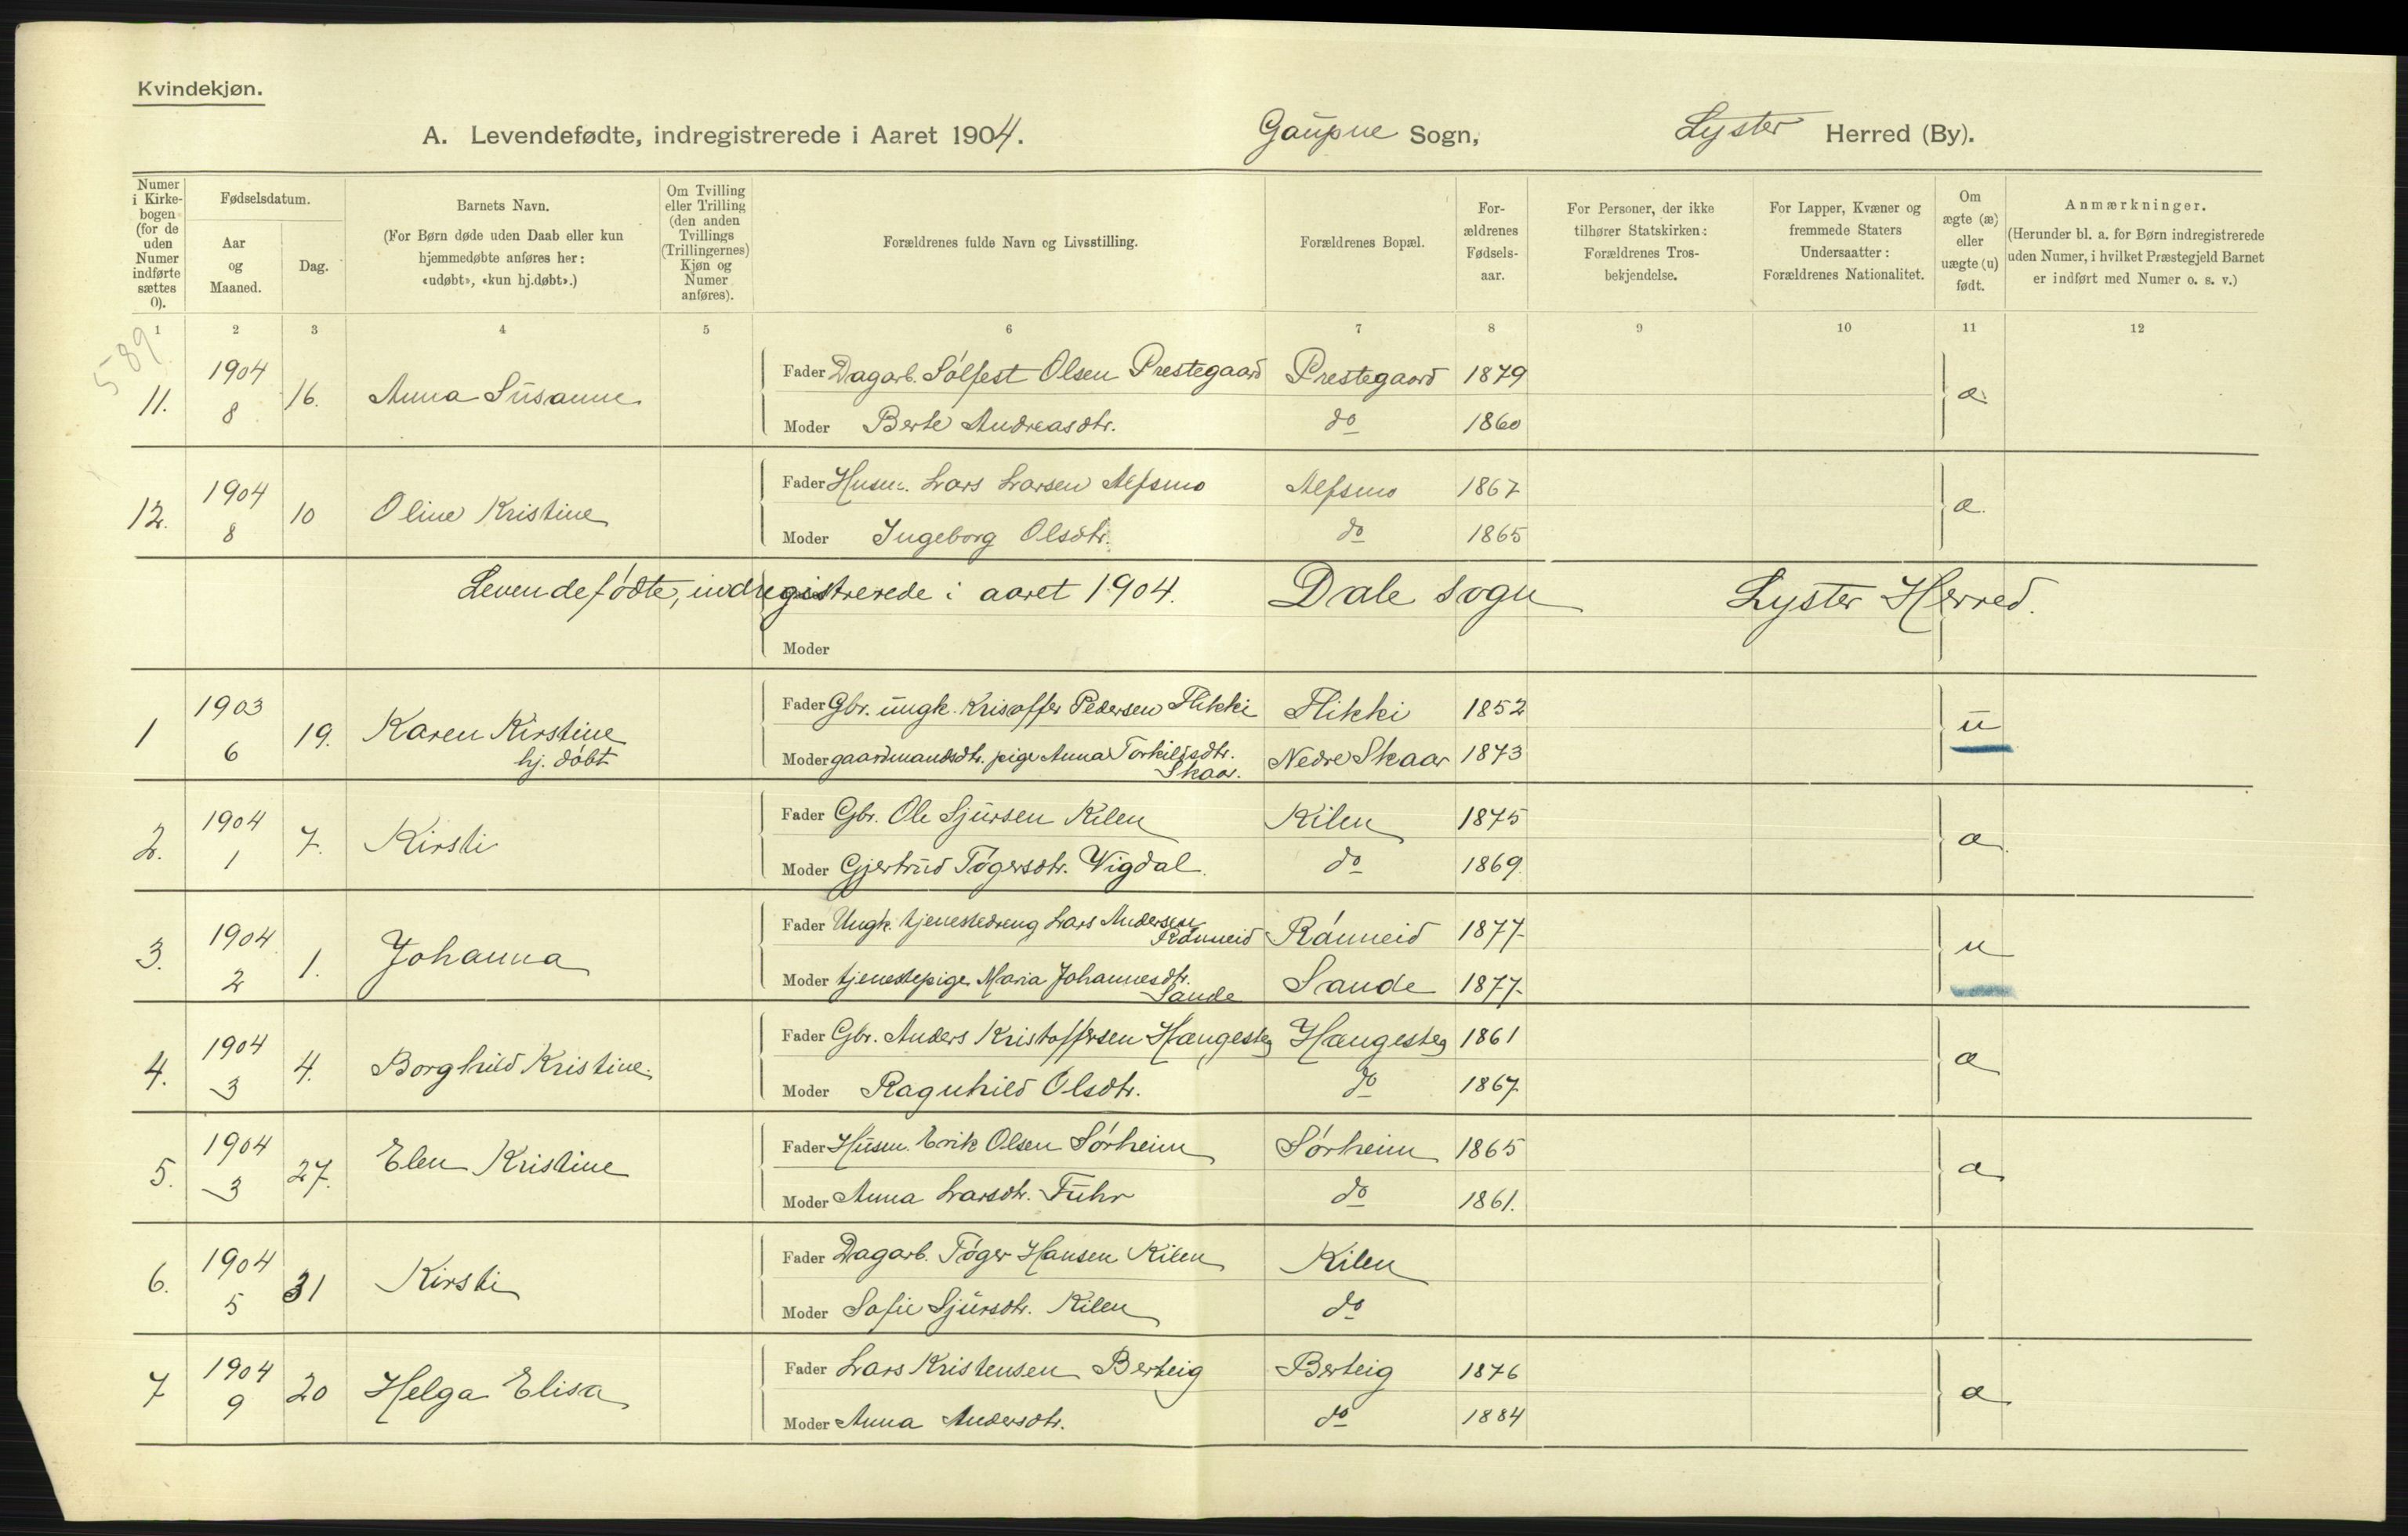 Kvindekjøn.
A. Levendefødte, indregistrerede i Aaret 1904. Gaupne Sogn, Lyster Herred (By).
Numer i Kirkebogen (for de uden Numer indførte sættes 0).
Fødselsdatum.
Aar og Maaned.
Dag.
Barnets Navn.
(For Børn døde uden Daab eller kun hjemmedøbte anføres her: «udøbt», «kun hj.døbt».)
Om Tvilling eller Trilling (den anden Tvillings (Trillingernes) Kjøn og Numer anføres).
Forældrenes fulde Navn og Livsstilling.
Forældrenes Bopæl.
Forældrenes Fødselsaar.
For Personer, der ikke tilhører Statskirken: Forældrenes Trosbekjendelse.
For Lapper, Kvæner og fremmede Staters Undersaatter: Forældrenes Nationalitet.
Om ægte (æ) eller uægte (u) født.
Anmærkninger.
(Herunder bl. a. for Børn indregistrerede uden Numer, i hvilket Præstegjeld Barnet er indført med Numer o. s. v.)
1 2 3 4 5 6 7 8 9 10 11 12
589
11. 1904 8 16. Anna Susanne Fader Dagarb. Sølfest Olsen Prestegaard Prestegaard 1879 æ
Moder Berte Andreasdtr. do 1860
12. 1904 8 10 Oline Kristine Fader Husm. Lars Larsen Alfsmo Alfsmo 1867 æ.
Moder Ingeborg Olsdtr. do 1865
Levendefødte, indregistrerede i aaret 1904. Dale sogn Lyster Herred.
Moder
1 1903 6 19. Karen Kirstine Fader Gbr. ungk. Krisoffer Pedersen Flikki Flikki 1852 u
hj. døbt Moder gaardmandsdtr. pige Anna Torkilsdtr. Skaar. Nedre Skaar 1873
2. 1904 1 7. Kirsti Fader Gbr. Ole Sjursen Kilen Kilen 1875 æ
Moder Gjertrud Tøgersdtr. Vigdal. do 1869.
3. 1904 2 1. Johanna Fader Ungk. tjenestedreng Lars Andersen Rønneid Rønneid 1877 u
Moder tjenestepige Maria Johannesdtr. Sande Sande 1877
4. 1904 3 4. Borghild Kristine. Fader Gbr. Anders Kristoffersen Haugesteg Haugesteg 1861 æ
Moder Ragnhild Olsdtr. do 1867
5. 1904 3 27. Elen Kristine Fader Husm. Erik Olsen Sørheim Sørheim 1865 æ
Moder Anna Larsdtr. Fuhr do 1861.
6. 1904 5 31 Kirsti Fader Dagarb. Tøger Hansen Kilen Kilen
Moder Sofie Sjursdtr. Kilen do
7 1904 9 20 Helga Elisa Fader Lars Kristensen Berteig Berteig 1876 æ
Moder Anna Andersdtr. do 1884